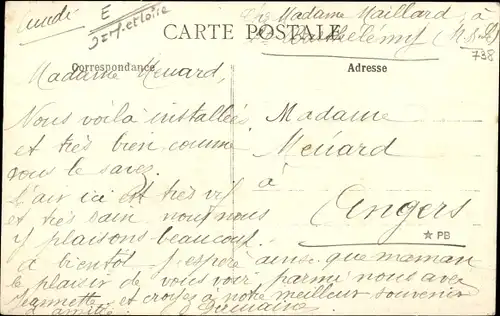 Lundi
E
2 = M. et Loire
CARTE POSTALE
Chez Madame Maillard, à
Barthélemy (M & L)
738
Correspondance
Adresse
Madame Menard,
Nous voilà installées
et très bien comme
vous le savez.
L'air ici est très vif
et très sain nous nous
y plaisons beaucoup.
à bientôt j'espère ainsi que maman
le plaisir de vous voir parmi nous avec
Jeannette et croyez à notre meilleur souvenir
d'amitié. Germaine
Madame
Menard
à
Angers
★ PB